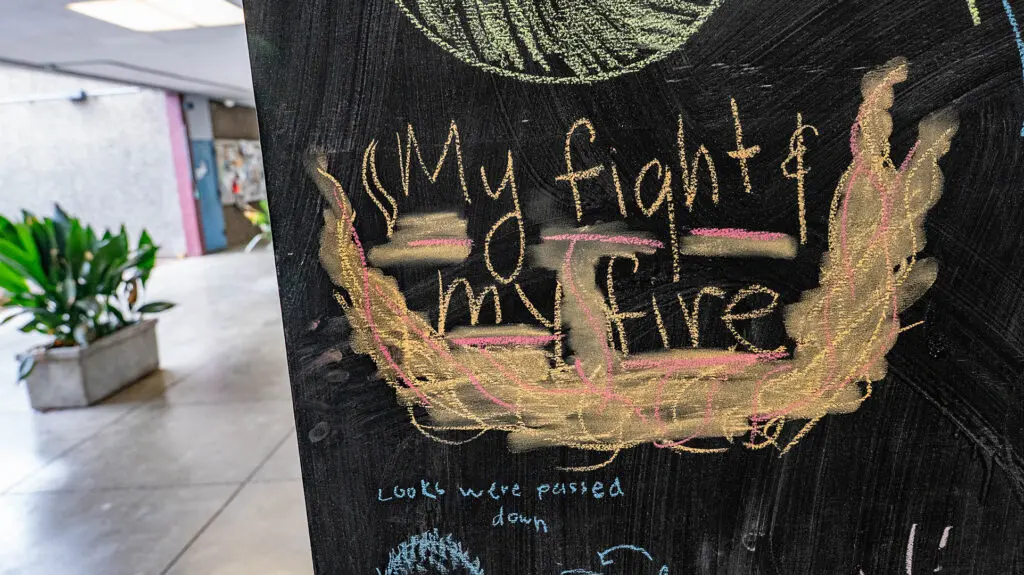 My fight &
my fire
Looks were passed
down